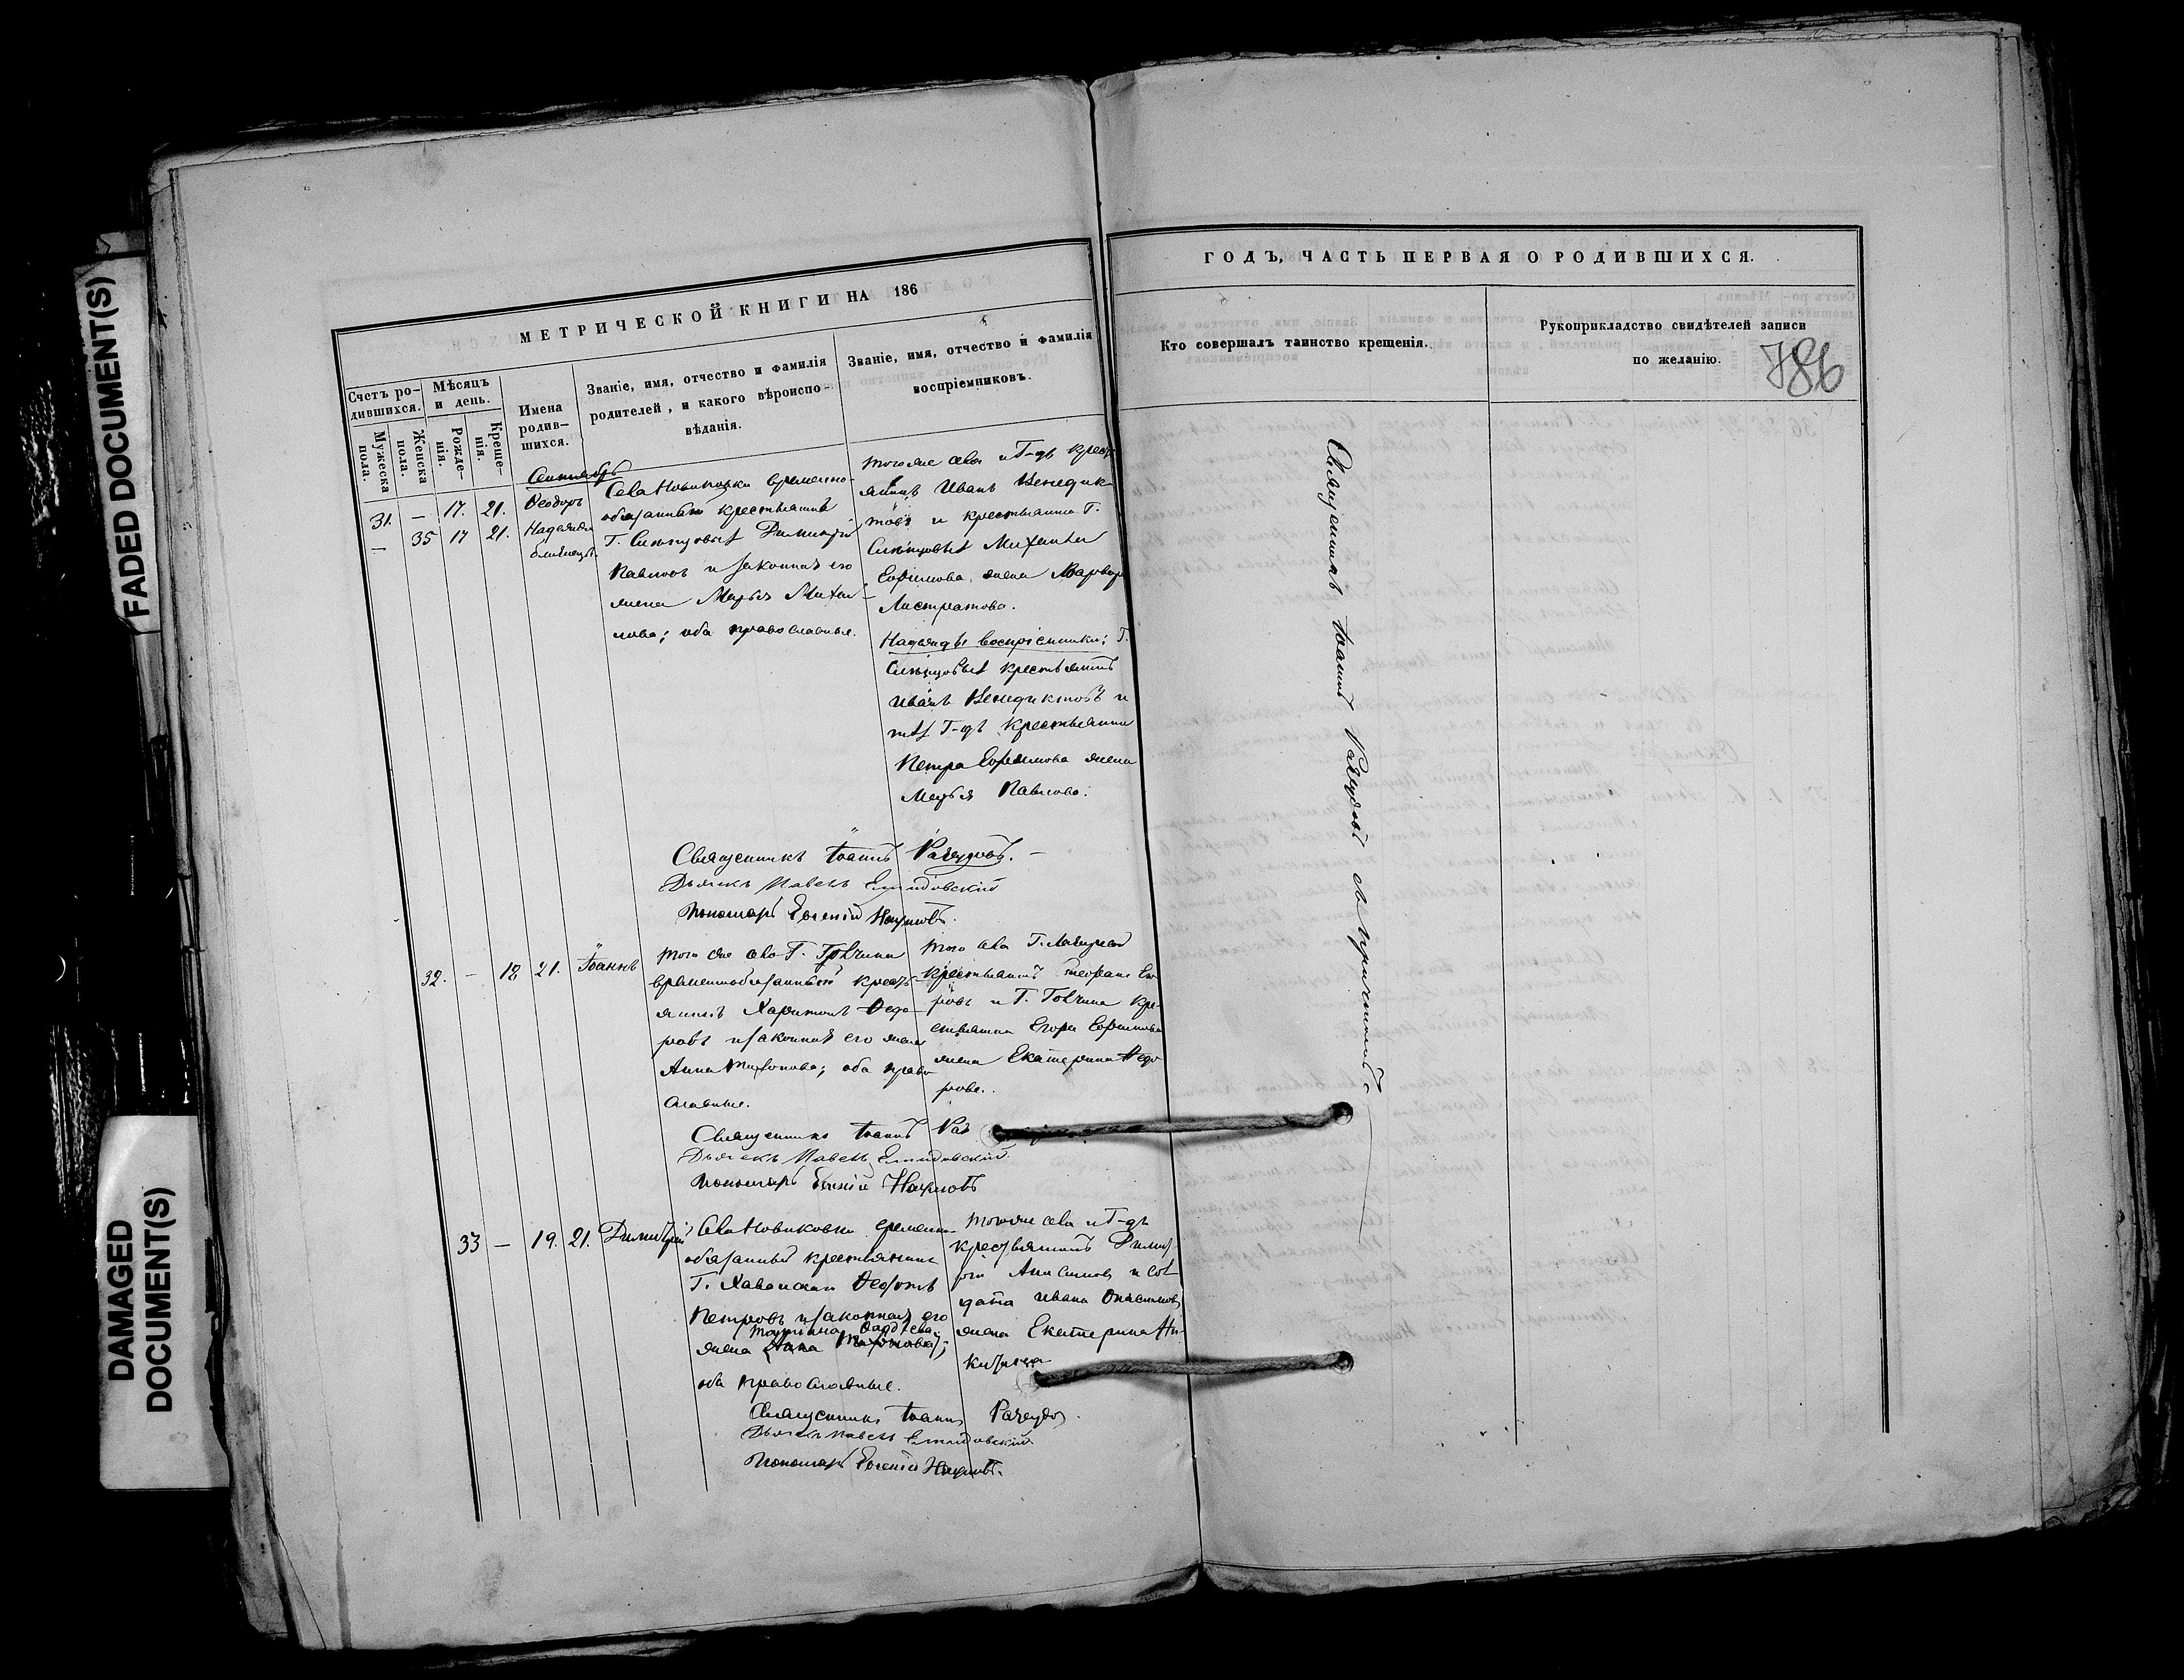 FADED DOCUMENT(S)
DAMAGED
DOCUMENT(S)
МЕТРИЧЕСКОЙ КНИГИ НА 186
Счетъ ро-
дившихся.
Мужеска
пола.
Женска
пола.
Мѣсяцъ
и день.
Рожде-
нія.
Креще-
нія.
Имена
родив-
шихся.
Званіе, имя, отчество и фамилія
родителей, и какого вѣроиспо-
вѣданія.
Званіе, имя, отчество и фамилія
воспріемниковъ.
Сентябрь
31. — 17. 21. Ѳеодоръ
— 35 17 21. Надежда
близнецы.
Села Новиковки временно-
обязанный крестьянинъ
Г. Димитрій
Павловъ и законная его
жена Марья Михай-
лова; оба православные.
того же села и Г-дъ крест
янинъ Иванъ Венедик
товъ и крестьянина Г.
Михаила
Ефимова жена Варвара
Листратова.
Надежды воспріемники: Г.
крестьянинъ
Иванъ Венедиктовъ и
тѣхъ Г-дъ крестьянина
Петра Ефимова жена
Марья Павлова.
Священникъ Іоаннъ
Дьячекъ Павелъ
Пономарь Евгеній Наумовъ.
32. — 18 21. Іоаннъ
того же села Г.
временнообязанный кресть-
янинъ Харитонъ Ѳедо-
ровъ и законная его жена
Анна Тихонова; оба право
славные.
того села Г.
крестьянинъ Стефанъ Его
ровъ и Г. кре-
стьянина Егора Ефимова
жена Екатерина Ѳедо
рова.
Священникъ Іоаннъ
Дьячекъ Павелъ
Пономарь Евгеній Наумовъ
33 — 19. 21. Димитрій
Села Новиковки временно
обязанный крестьянинъ
Г.
Петровъ и законная его
жена
оба православные.
того же села и Г-дъ
крестьянинъ Димит
рій и сол
дата Ивана
жена Екатерина Ни-
Священникъ Іоаннъ
Дьячекъ Павелъ
Пономарь Евгеній Наумовъ.
ГОДЪ, ЧАСТЬ ПЕРВАЯ О РОДИВШИХСЯ.
Кто совершалъ таинство крещенія.
Рукоприкладство свидѣтелей записи
по желанію.
786
Священникъ Іоаннъ съ причтомъ